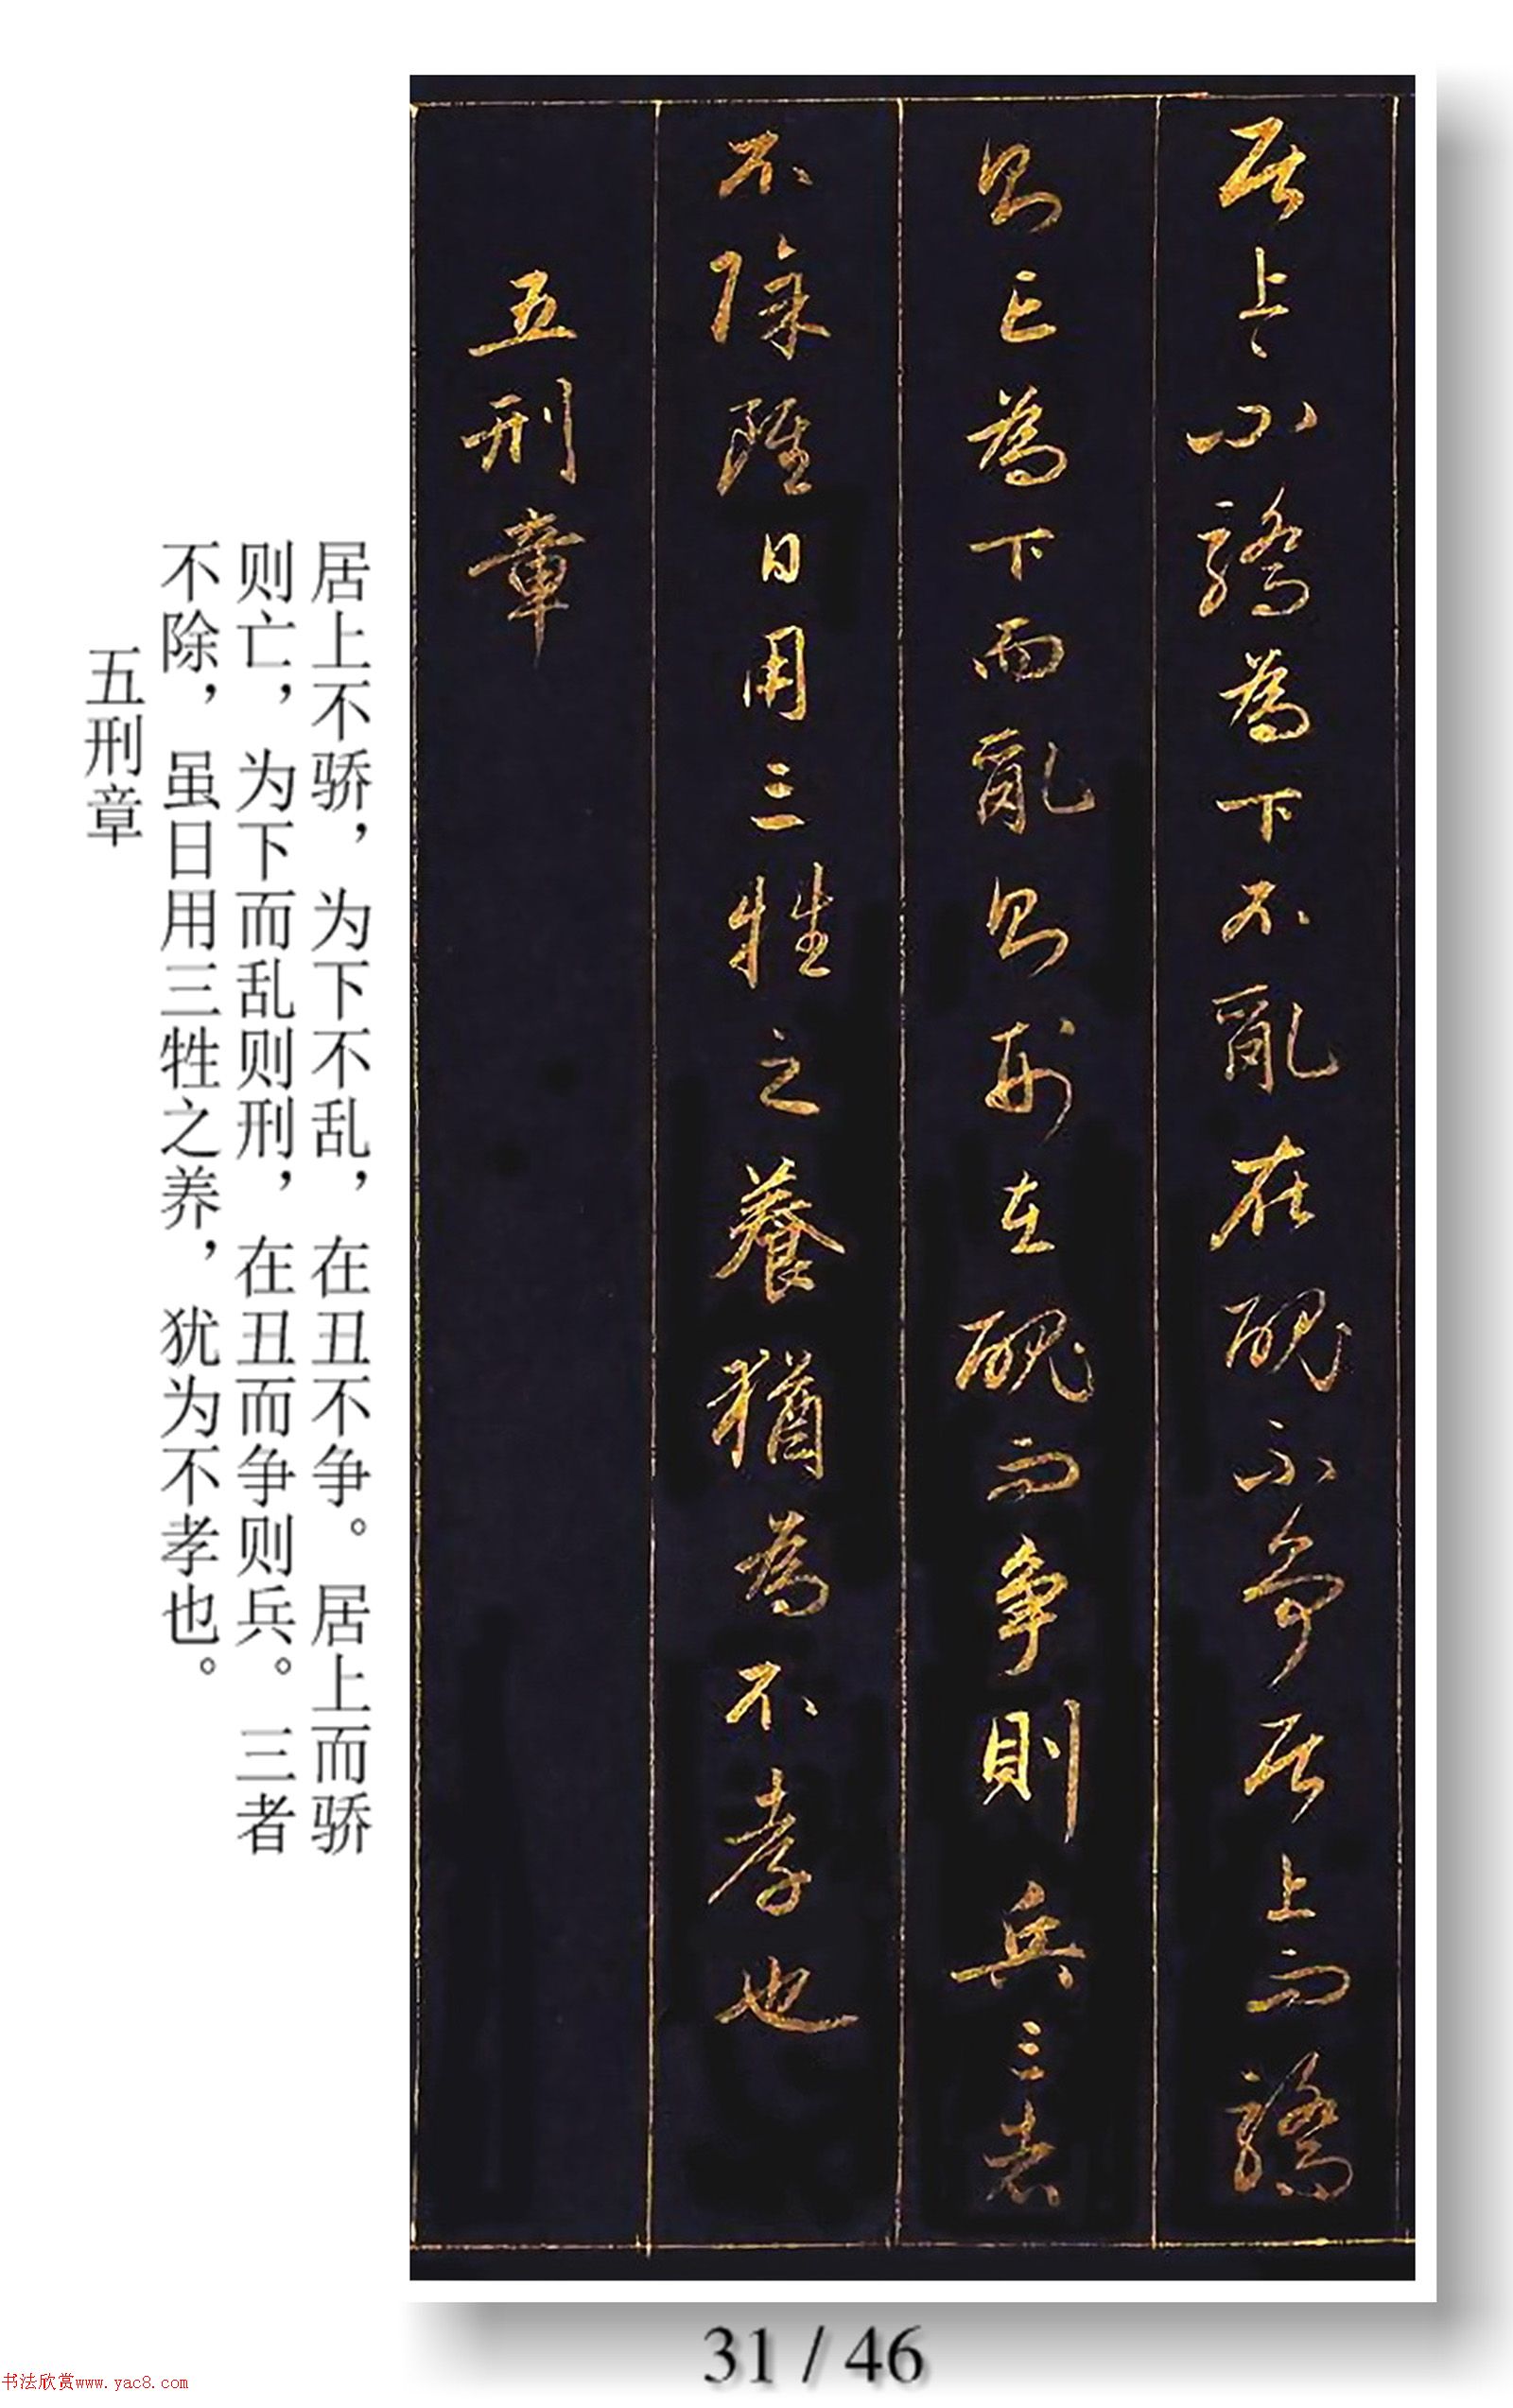 居上不驕為下不亂在醜不爭居上而驕
則亡為下而亂則刑在醜而爭則兵三者
不除雖日用三牲之養猶為不孝也
五刑章
居上不骄，为下不乱，在丑不争。居上而骄
则亡，为下而乱则刑，在丑而争则兵。三者
不除，虽日用三牲之养，犹为不孝也。
五刑章
31 / 46
书法欣赏www.yac8.com